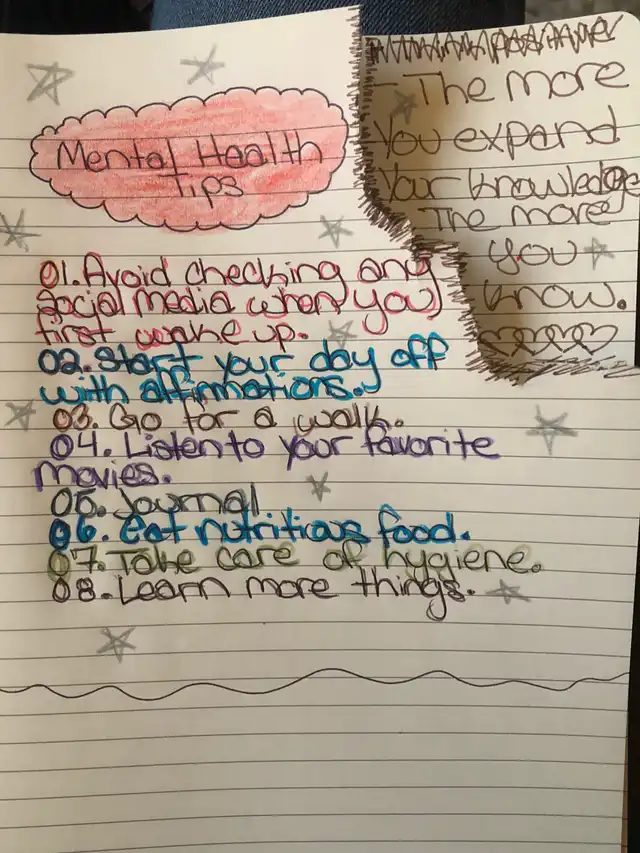 Mental Health
Tips
01. Avoid checking any
social media when you
first wake up.
02. Start your day off
with affirmations.
03. Go for a walk.
04. Listen to your favorite
movies.
05. Journal
06. Eat nutritious food.
07. Take care of hygiene.
08. Learn more things.
- The more
you expand
your knowledge
The more
you
know.